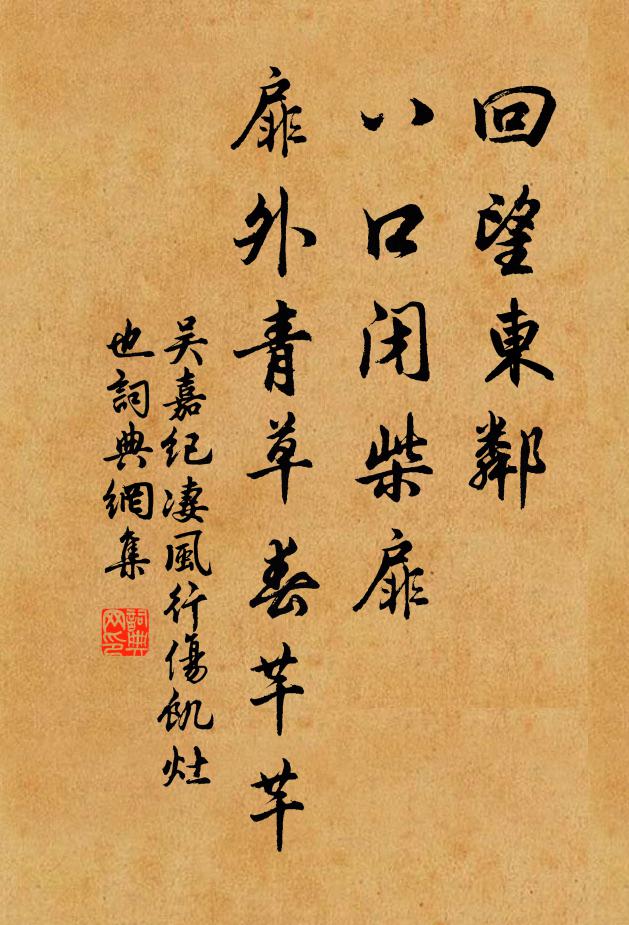 回望東鄰
八口闭柴扉
扉外青草春芊芊
吴嘉纪凄風行傷飢灶
也詞典網集
詞典网印